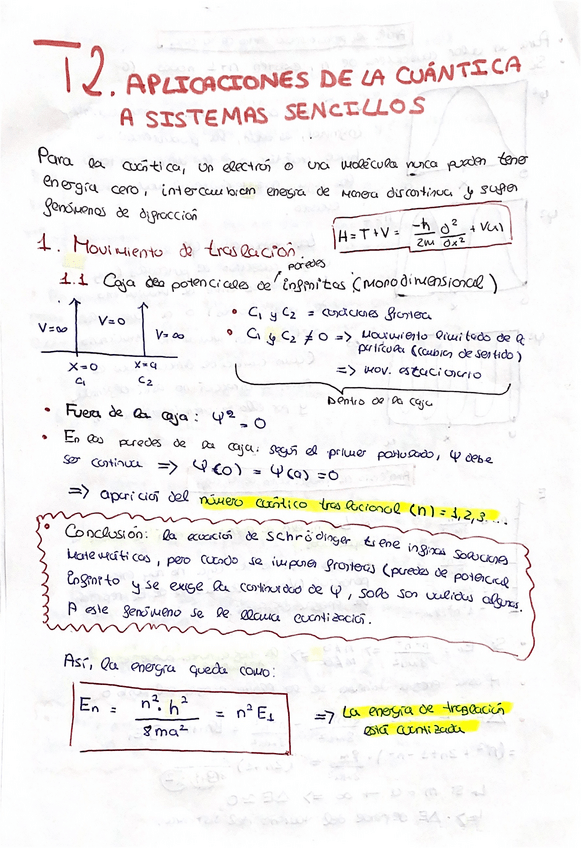 T2. APLICACIONES DE LA CUÁNTICA
A SISTEMAS SENCILLOS
Para la cuántica, un electrón o una molécula nunca pueden tener
energía cero, intercambian energía de manera discontinua y sufren
fenómenos de difracción
H = T + V = -ħ/2m ∂²/∂x² + V(x)
1. Movimiento de traslación.
1.1 Caja de potenciales de paredes infinitas (monodimensional)
V=∞ V=0 V=∞
x=0 x=a
C₁ C₂
• C₁ y C₂ = condiciones frontera
• C₁ y C₂ ≠ 0 => Movimiento limitado de la
partícula (cambios de sentido)
=> mov. estacionario
Dentro de la caja
• Fuera de la caja: Ψ² = 0
• En las paredes de la caja: según el primer postulado, Ψ debe
ser continua => Ψ(0) = Ψ(a) = 0
=> aparición del número cuántico traslacional (n) = 1,2,3...
• Conclusión: la ecuación de Schrödinger tiene infinitas soluciones
matemáticas, pero cuando se imponen fronteras (paredes de potencial
infinito y se exige la continuidad de Ψ, solo son válidas algunas.
A este fenómeno se le llama cuantización.
Así, la energía queda como:
En = n²·h² / 8ma² = n² E₁ => La energía de traslación
está cuantizada